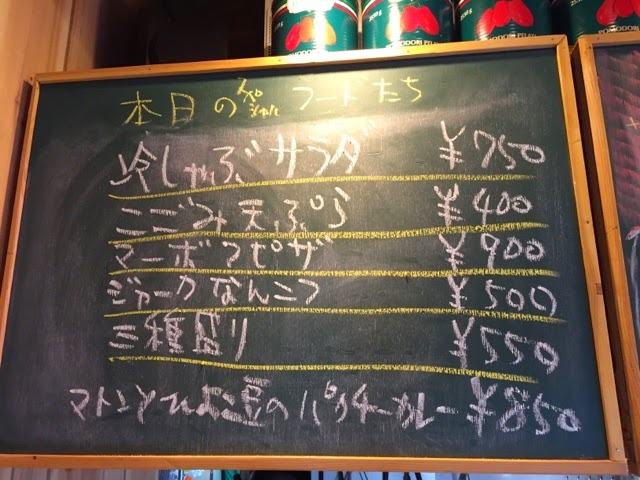 POMODORI PELATI
本日のスペシャルフードたち
冷しゃぶサラダ ¥750
こごみ天ぷら ¥400
マーボーピザ ¥900
ジャークなんこつ ¥500
三種盛り ¥550
マトンとひよこ豆のパンチーカレー ¥850